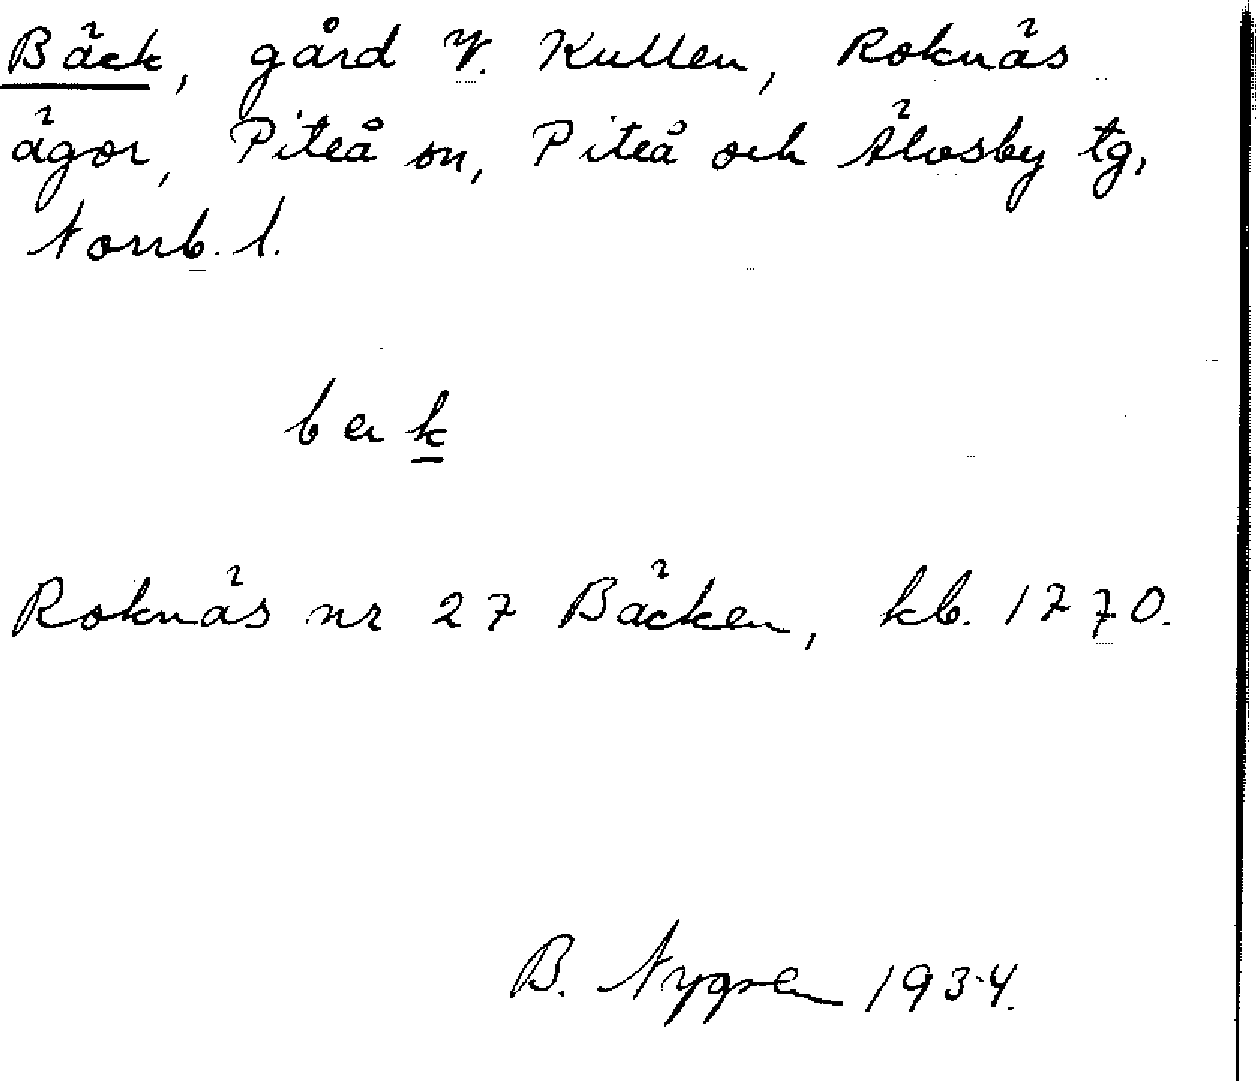 Bäck, gård V. Kullen, Roknäs
ägor, Piteå sn, Piteå och Älvsby tg,
Norrb. l.
Roknäs nr 27 Bäcken, kb. 1770.
B. Nygren 1934.